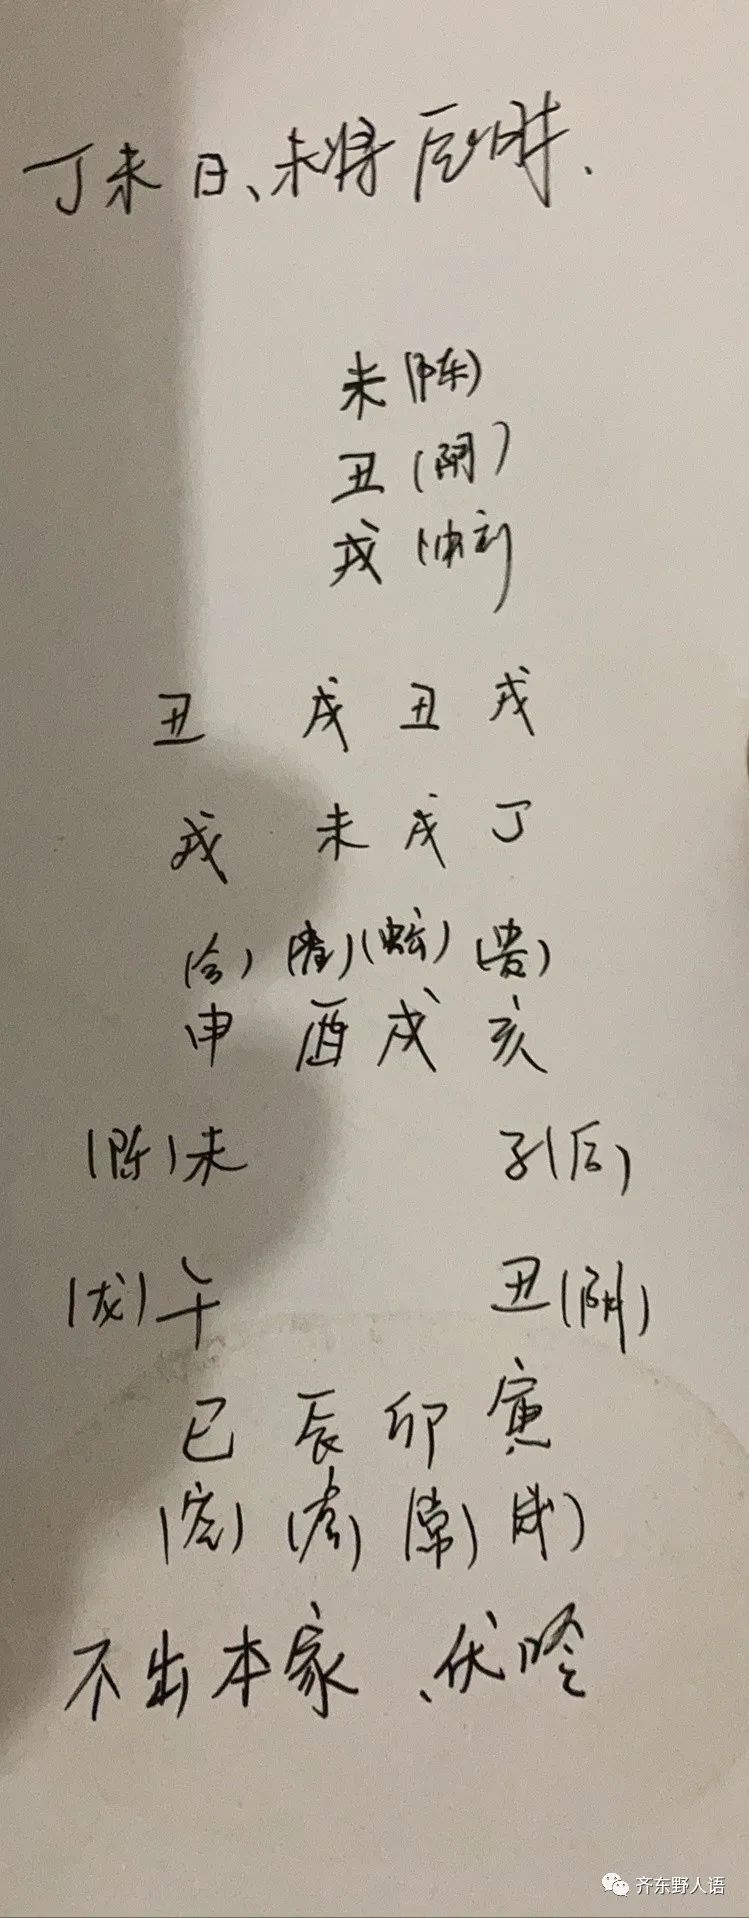 丁未日、未将辰时.
未(陈)
丑(阴)
戌(蛇)
丑 戌 丑 戌
戌 未 戌 丁
(合) (雀) (蛇) (贵)
申 酉 戌 亥
(陈)未 子(后)
(龙)午 丑(阴)
巳 辰 卯 寅
(空) (虎) (常) (武)
不出本家、伏吟
齐东野人语